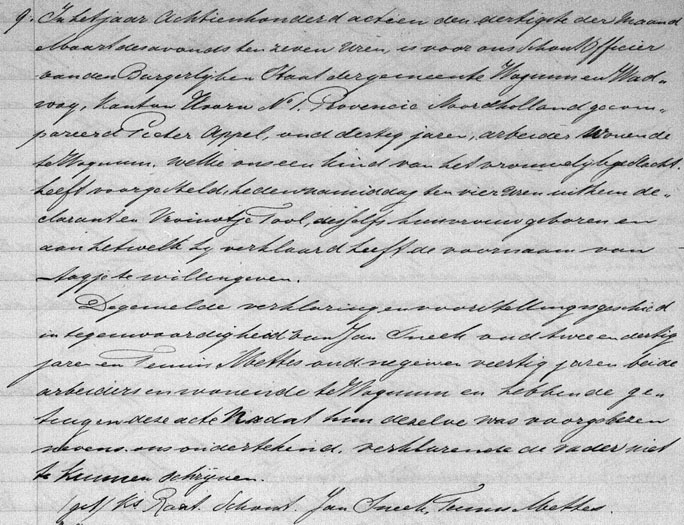 9. In het jaar Achtienhonderd acteen den dertigste der Maand
Maart des avonds ten zeven uren, is voor ons Schout Officier
van den Burgerlyken Staat der gemeente Wognum en Wad-
way, Kanton Hoorn No 1. Provencie Noordholland gecom-
pareerd Pieter Appel, oud dertig jaren, arbeider wonende
te Wognum. welke ons een kind van het vrouwelyk geslacht
heeft voorgesteld, heden namiddag ten vier uren uit hem de-
clarant en Trijntje Tool, deszelfs huisvrouw geboren en
aan hetwelk hy verklaard heeft de voornaam van
Aagje te willen geven.
De gemelde verklaring en voorstelling geschied
in tegenwoordigheid van Jan Sneek oud twee en dertig
jaren en Teunis Mettes oud negen en veertig jaren beide
arbeiders en wonende te Wognum en hebben de ge-
tuigen deze acte Nadat hun dezelve was voorgelezen
nevens ons ondertekend. verklarende de vader niet
te kunnen schryven.
(get) Ks Raat. Schout. Jan Sneek, Teunis Mettes.